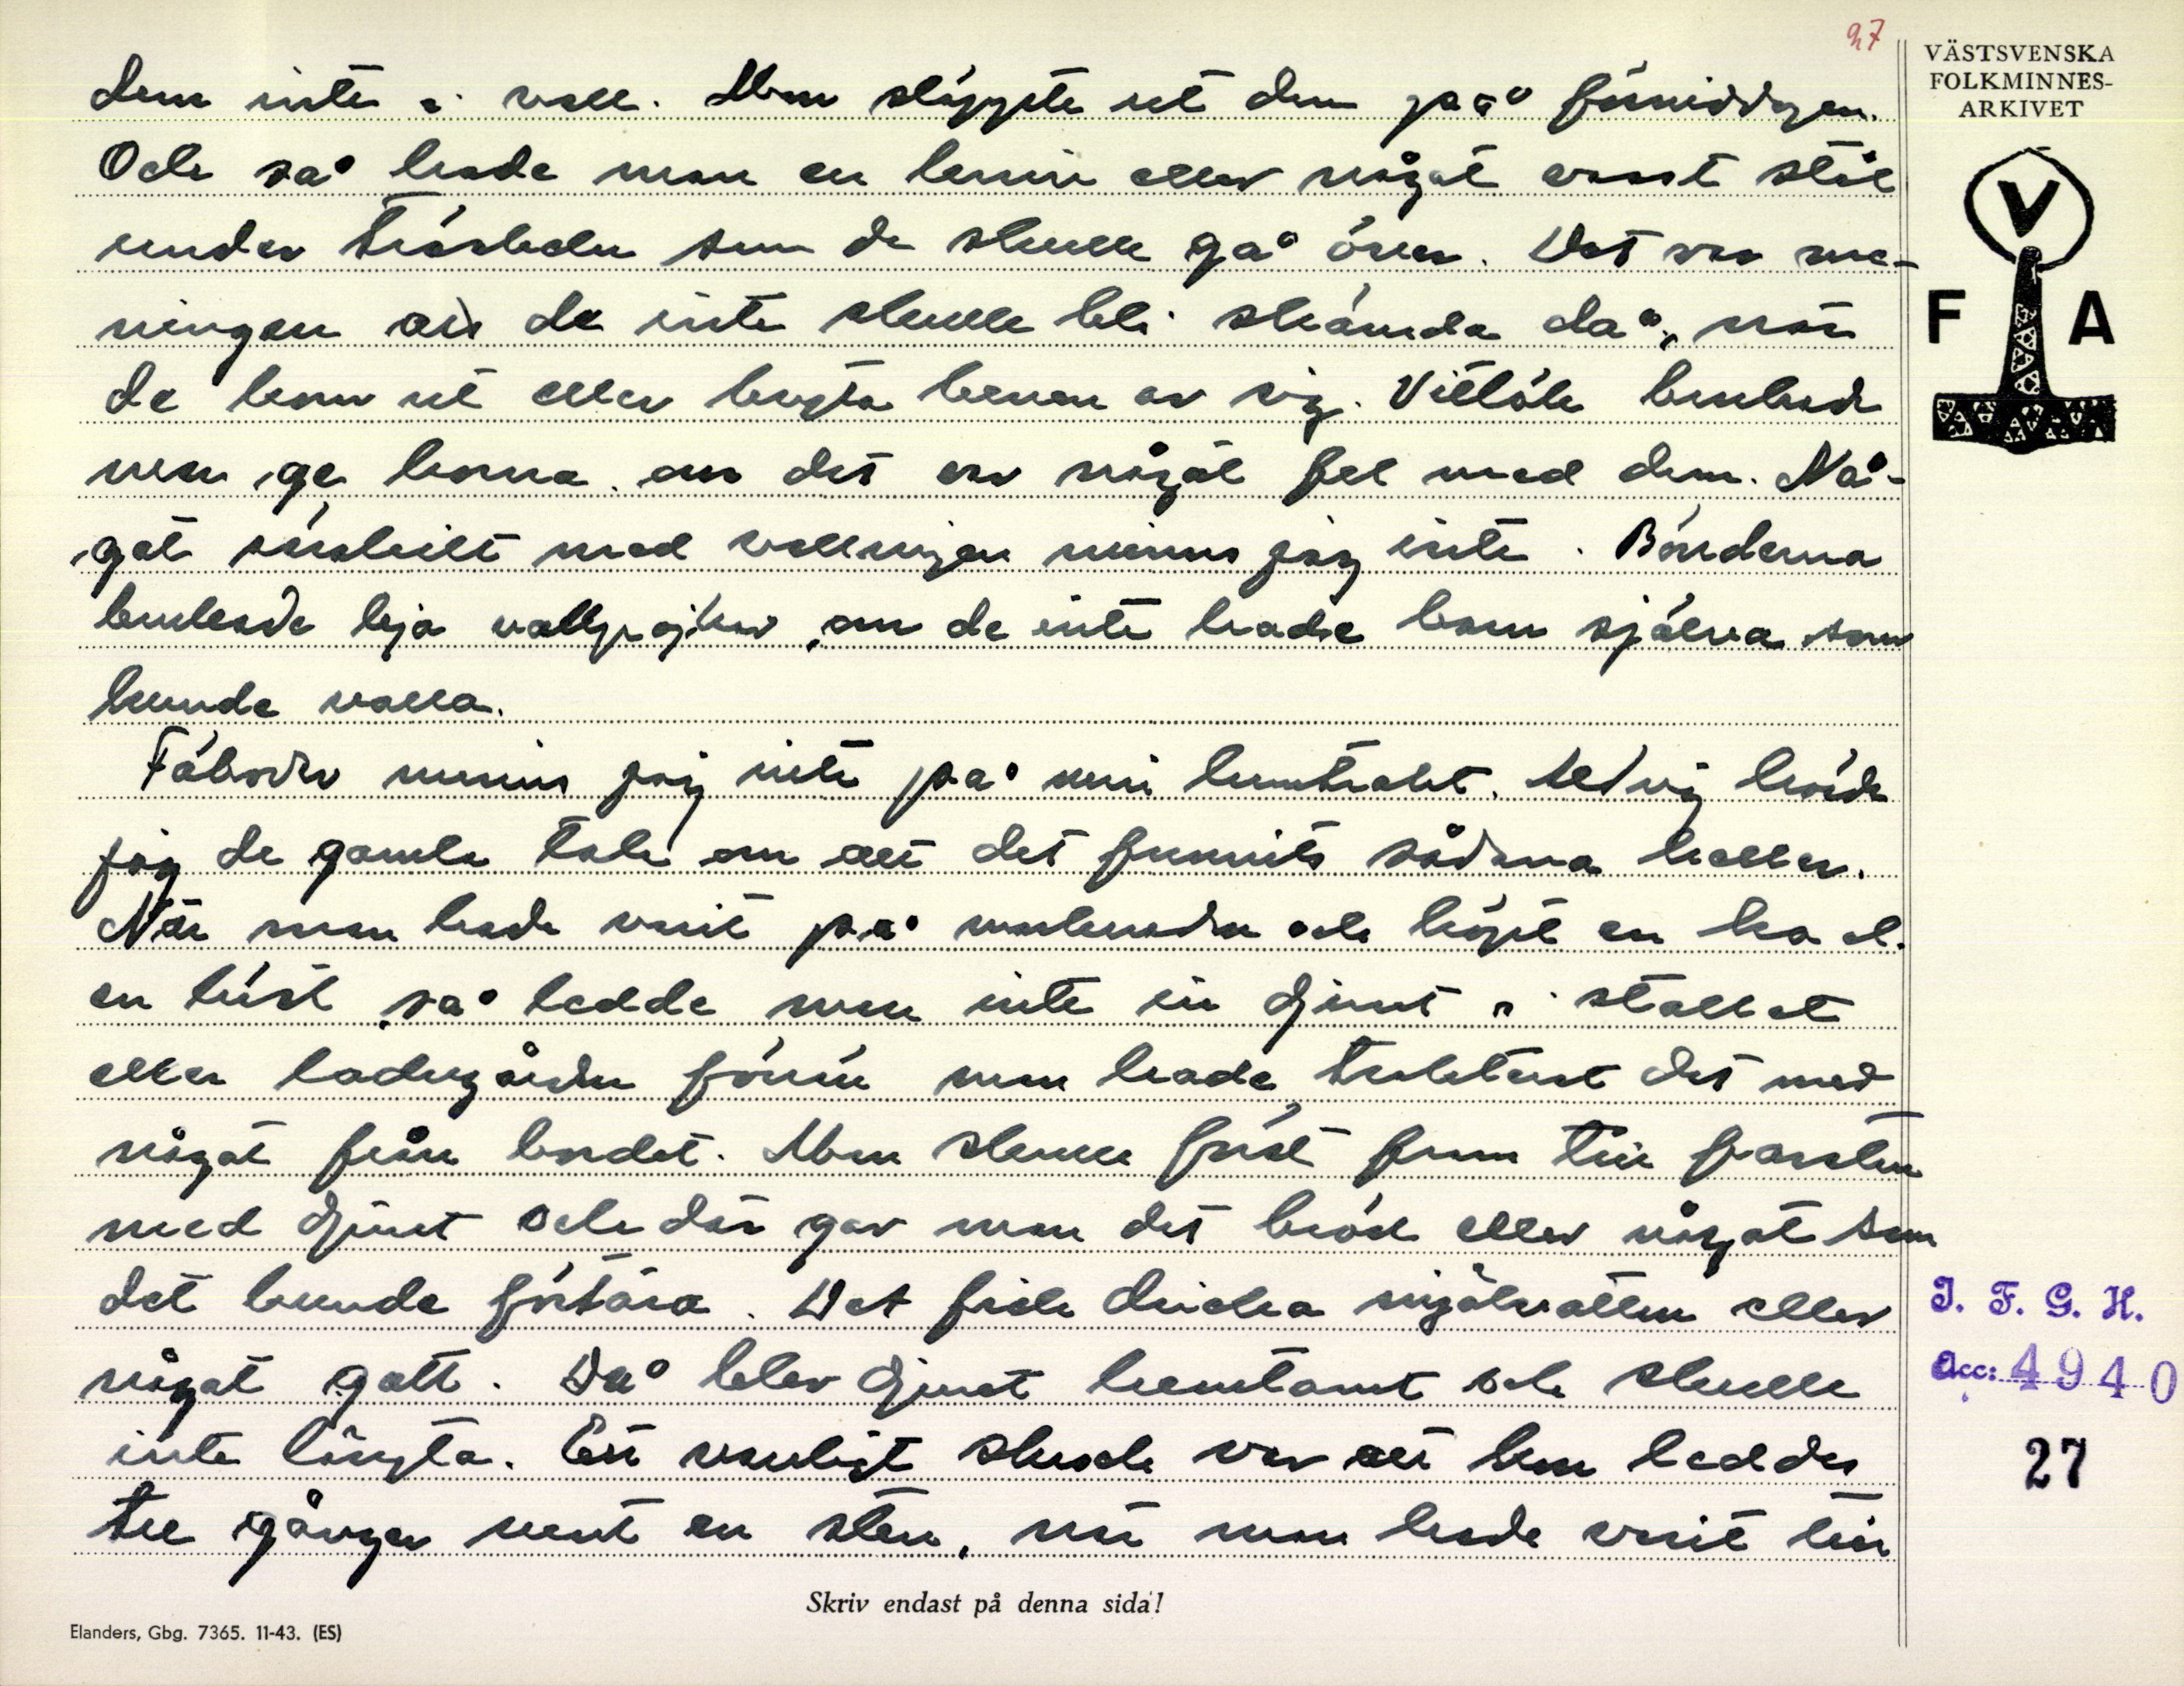 27
dem inte i vall. Man släppte ut dem på förmiddagen.
Och så hade man en kniv eller något annat stål
under tröskeln som de skulle gå över. Det var me-
ningen att de inte skulle bli skrämda då, när
de kom ut eller bryta benen av sig. Vitlök brukade
man ge korna om det var något fel med dem. Nå-
got särskilt med vallningen minns jag inte. Bönderna
brukade leja vallpojkar, om de inte hade barn själva som
kunde valla.
Fäbodar minns jag inte på min hemtrakt. Aldrig hörde
jag de gamla tala om att det funnits sådana heller.
När man hade varit på marknaden och köpt en ko el.
en häst, så ledde man inte in djuret i stallet
eller ladugården förrän man hade trakterat det med
något från bordet. Man skulle först fram till farstun
med djuret och där gav man det bröd eller något som
det kunde förtära. Det fick dricka mjölvatten eller
något gott. Då blev djuret hemtamt och skulle
inte längta. Ett vanligt skrock var att kon leddes
tre gånger runt en sten, när man hade varit till
VÄSTSVENSKA
FOLKMINNES-
ARKIVET
V
F A
I. F. G. H.
Acc: 4940
27
Skriv endast på denna sida!
Elanders, Gbg. 7365. 11-43. (ES)